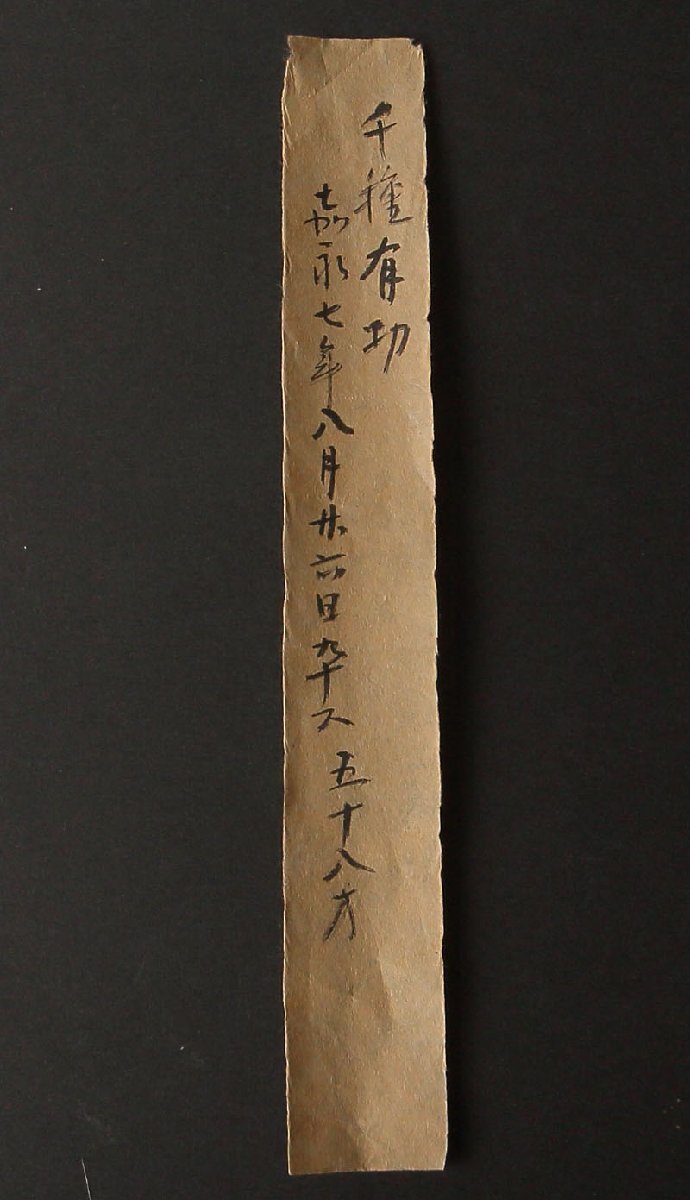 千種有功
嘉永七年八月廿六日卒ス 五十八才